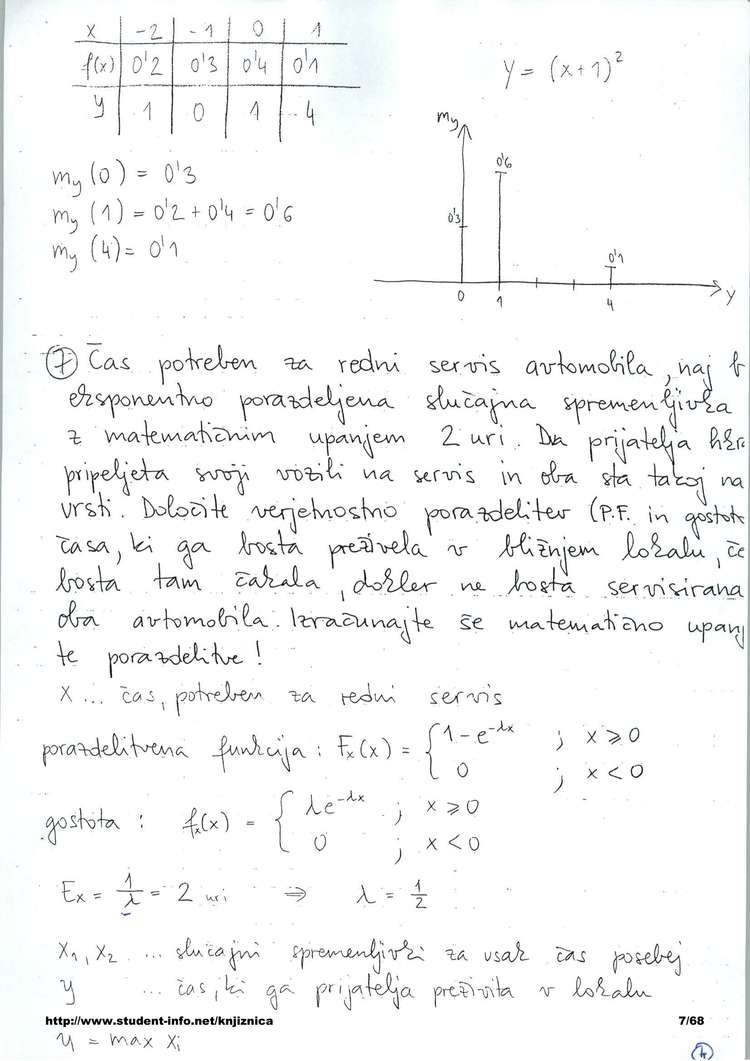 x -2 -1 0 1
f(x) 0'2 0'3 0'4 0'1
y 1 0 1 4
y = (x+1)²
my(0) = 0'3
my(1) = 0'2 + 0'4 = 0'6
my(4) = 0'1
my
0'6
0'3
0'1
0 1 4 y
⑦ Čas potreben za redni servis avtomobila, naj b
eksponentno porazdeljena slučajna spremenljivka
z matematičnim upanjem 2 uri. Da prijatelja
pripeljeta svoji vozili na servis in oba sta takoj na
vrsti. Določite verjetnostno porazdelitev (P.F. in gostot
časa, ki ga bosta preživela v bližnjem lokalu, če
bosta tam čakala, dokler ne bosta servisirana
oba avtomobila. Izračunajte še matematično upanj
te porazdelitve!
X ... čas, potreben za redni servis
porazdelitvena funkcija: Fx(x) = { 1-e^-λx ; x ≥ 0
0 ; x < 0
gostota: fx(x) = { λe^-λx ; x ≥ 0
0 ; x < 0
Ex = 1/λ = 2 uri ⇒ λ = 1/2
X₁, X₂ ... slučajni spremenljivki za vsak čas posebej
y ... čas, ki ga prijatelja preživita v lokalu
http://www.student-info.net/knjiznica 7/68
y = max Xi